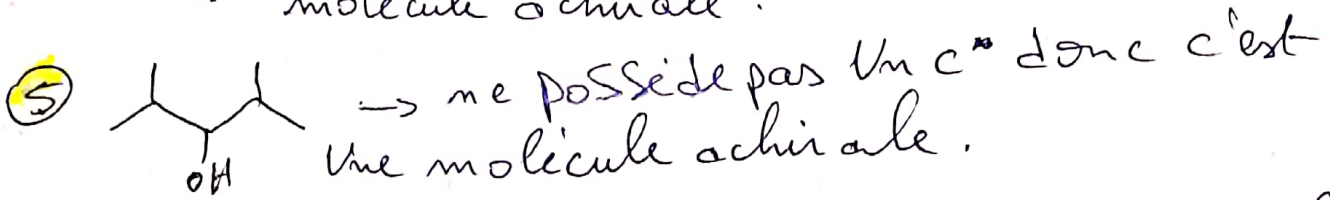 molécule achirale.
⑤ → ne possède pas Un C* donc c'est
OH Une molécule achirale.